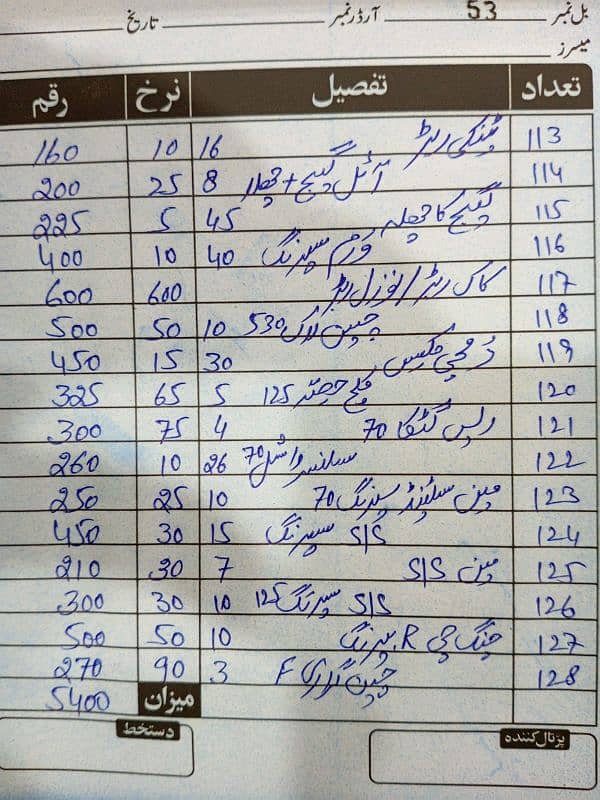 بل نمبر 53 آرڈر نمبر تاریخ
میسرز
تعداد تفصیل نرخ رقم
113 ٹینکی ربڑ 16 10 160
114 آئل گیج + چھلا 8 25 200
115 گیج کا چھلہ 45 5 225
116 وَرم سپرنگ 40 10 400
117 کاک ربڑ / نوزل ربڑ 600 600
118 چین لاک 530 10 50 500
119 دُمچی مکیس 30 15 450
120 کلچ حصّہ 125 5 65 325
121 ریس گٹکا 70 4 75 300
122 سلنسر واشل 70 26 10 260
123 مین سٹینڈ سپرنگ 70 10 25 250
124 S/S سپرنگ 15 30 450
125 پین S/S 7 30 210
126 S/S سپرنگ 125 10 30 300
127 چنگ چی R. سپرنگ 10 50 500
128 چین گراری F 3 90 270
میزان 5400
پڑتال کنندہ دستخط